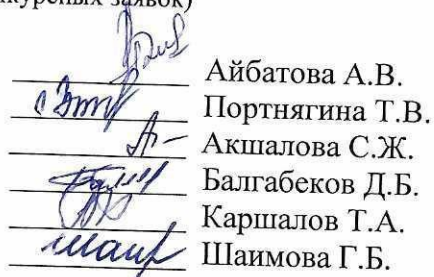 курсных заявок)
Айбатова А.В.
Портнягина Т.В.
Акшалова С.Ж.
Балгабеков Д.Б.
Каршалов Т.А.
Шаимова Г.Б.